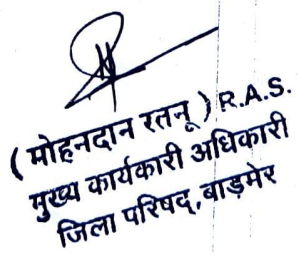 (मोहनदान रतनू) R.A.S.
मुख्य कार्यकारी अधिकारी
जिला परिषद्, बाड़मेर